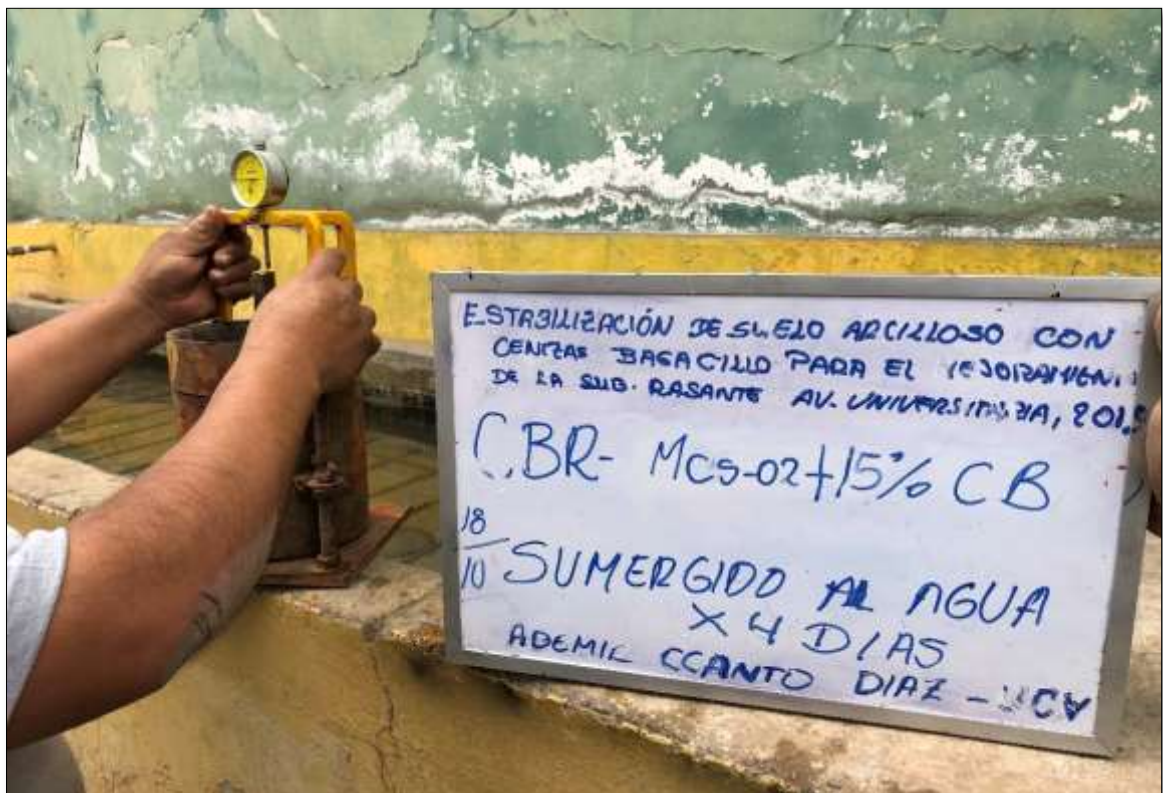 ESTABILIZACIÓN DE SUELO ARCILLOSO CON
CENIZAS BAGACILLO PARA EL
DE LA SUB-RASANTE AV. UNIVERSITARIA,
CBR- MCS-02+15% CB
18/10 SUMERGIDO AL AGUA
X 4 DIAS
ADEMIL CCANTO DIAZ -